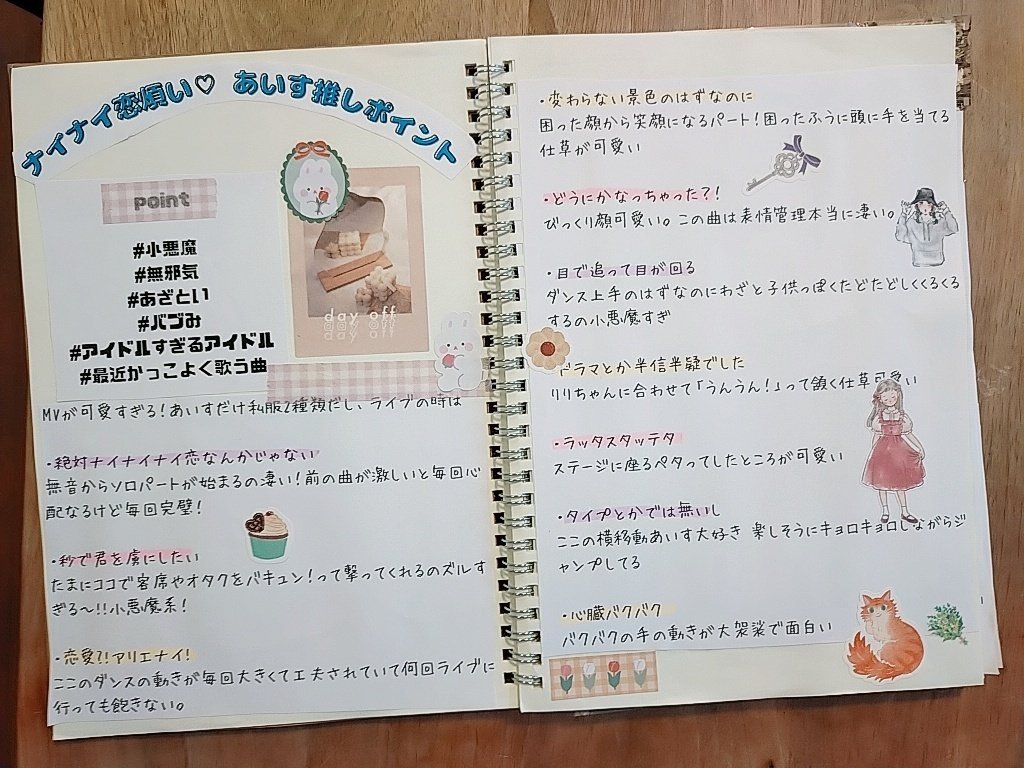 ナイナイ恋煩い♡ あいす推しポイント
point
#小悪魔
#無邪気
#あざとい
#バブみ
#アイドルすぎるアイドル
#最近かっこよく歌う曲
day off
day off
day off
MVが可愛すぎる！あいすだけ私服2種類だし、ライブの時は
・絶対ナイナイナイ恋なんかじゃない
無音からソロパートが始まるの凄い！前の曲が激しいと毎回心
配なるけど毎回完璧！
・秒で君を虜にしたい
たまにココで客席やオタクをバキュン！って撃ってくれるのズルす
ぎる〜!!小悪魔系！
・恋愛?!アリエナイ!
ここのダンスの動きが毎回大きくて工夫されていて何回ライブに
行っても飽きない。
・変わらない景色のはずなのに
困った顔から笑顔になるパート！困ったふうに頭に手を当てる
仕草が可愛い
・どうにかなっちゃった？！
びっくり顔可愛い。この曲は表情管理本当に凄い。
・目で追って目が回る
ダンス上手のはずなのにわざと子供っぽくたどたどしくくるくる
するの小悪魔すぎ
ドラマとか半信半疑でした
りりちゃんに合わせて「うんうん！」って頷く仕草可愛い
・ラッタスタッテタ
ステージに座るペタってしたところが可愛い
・タイプとかでは無いし
ここの横移動あいす大好き 楽しそうにキョロキョロしながらジ
ャンプしてる
・心臓バクバク
バクバクの手の動きが大袈裟で面白い